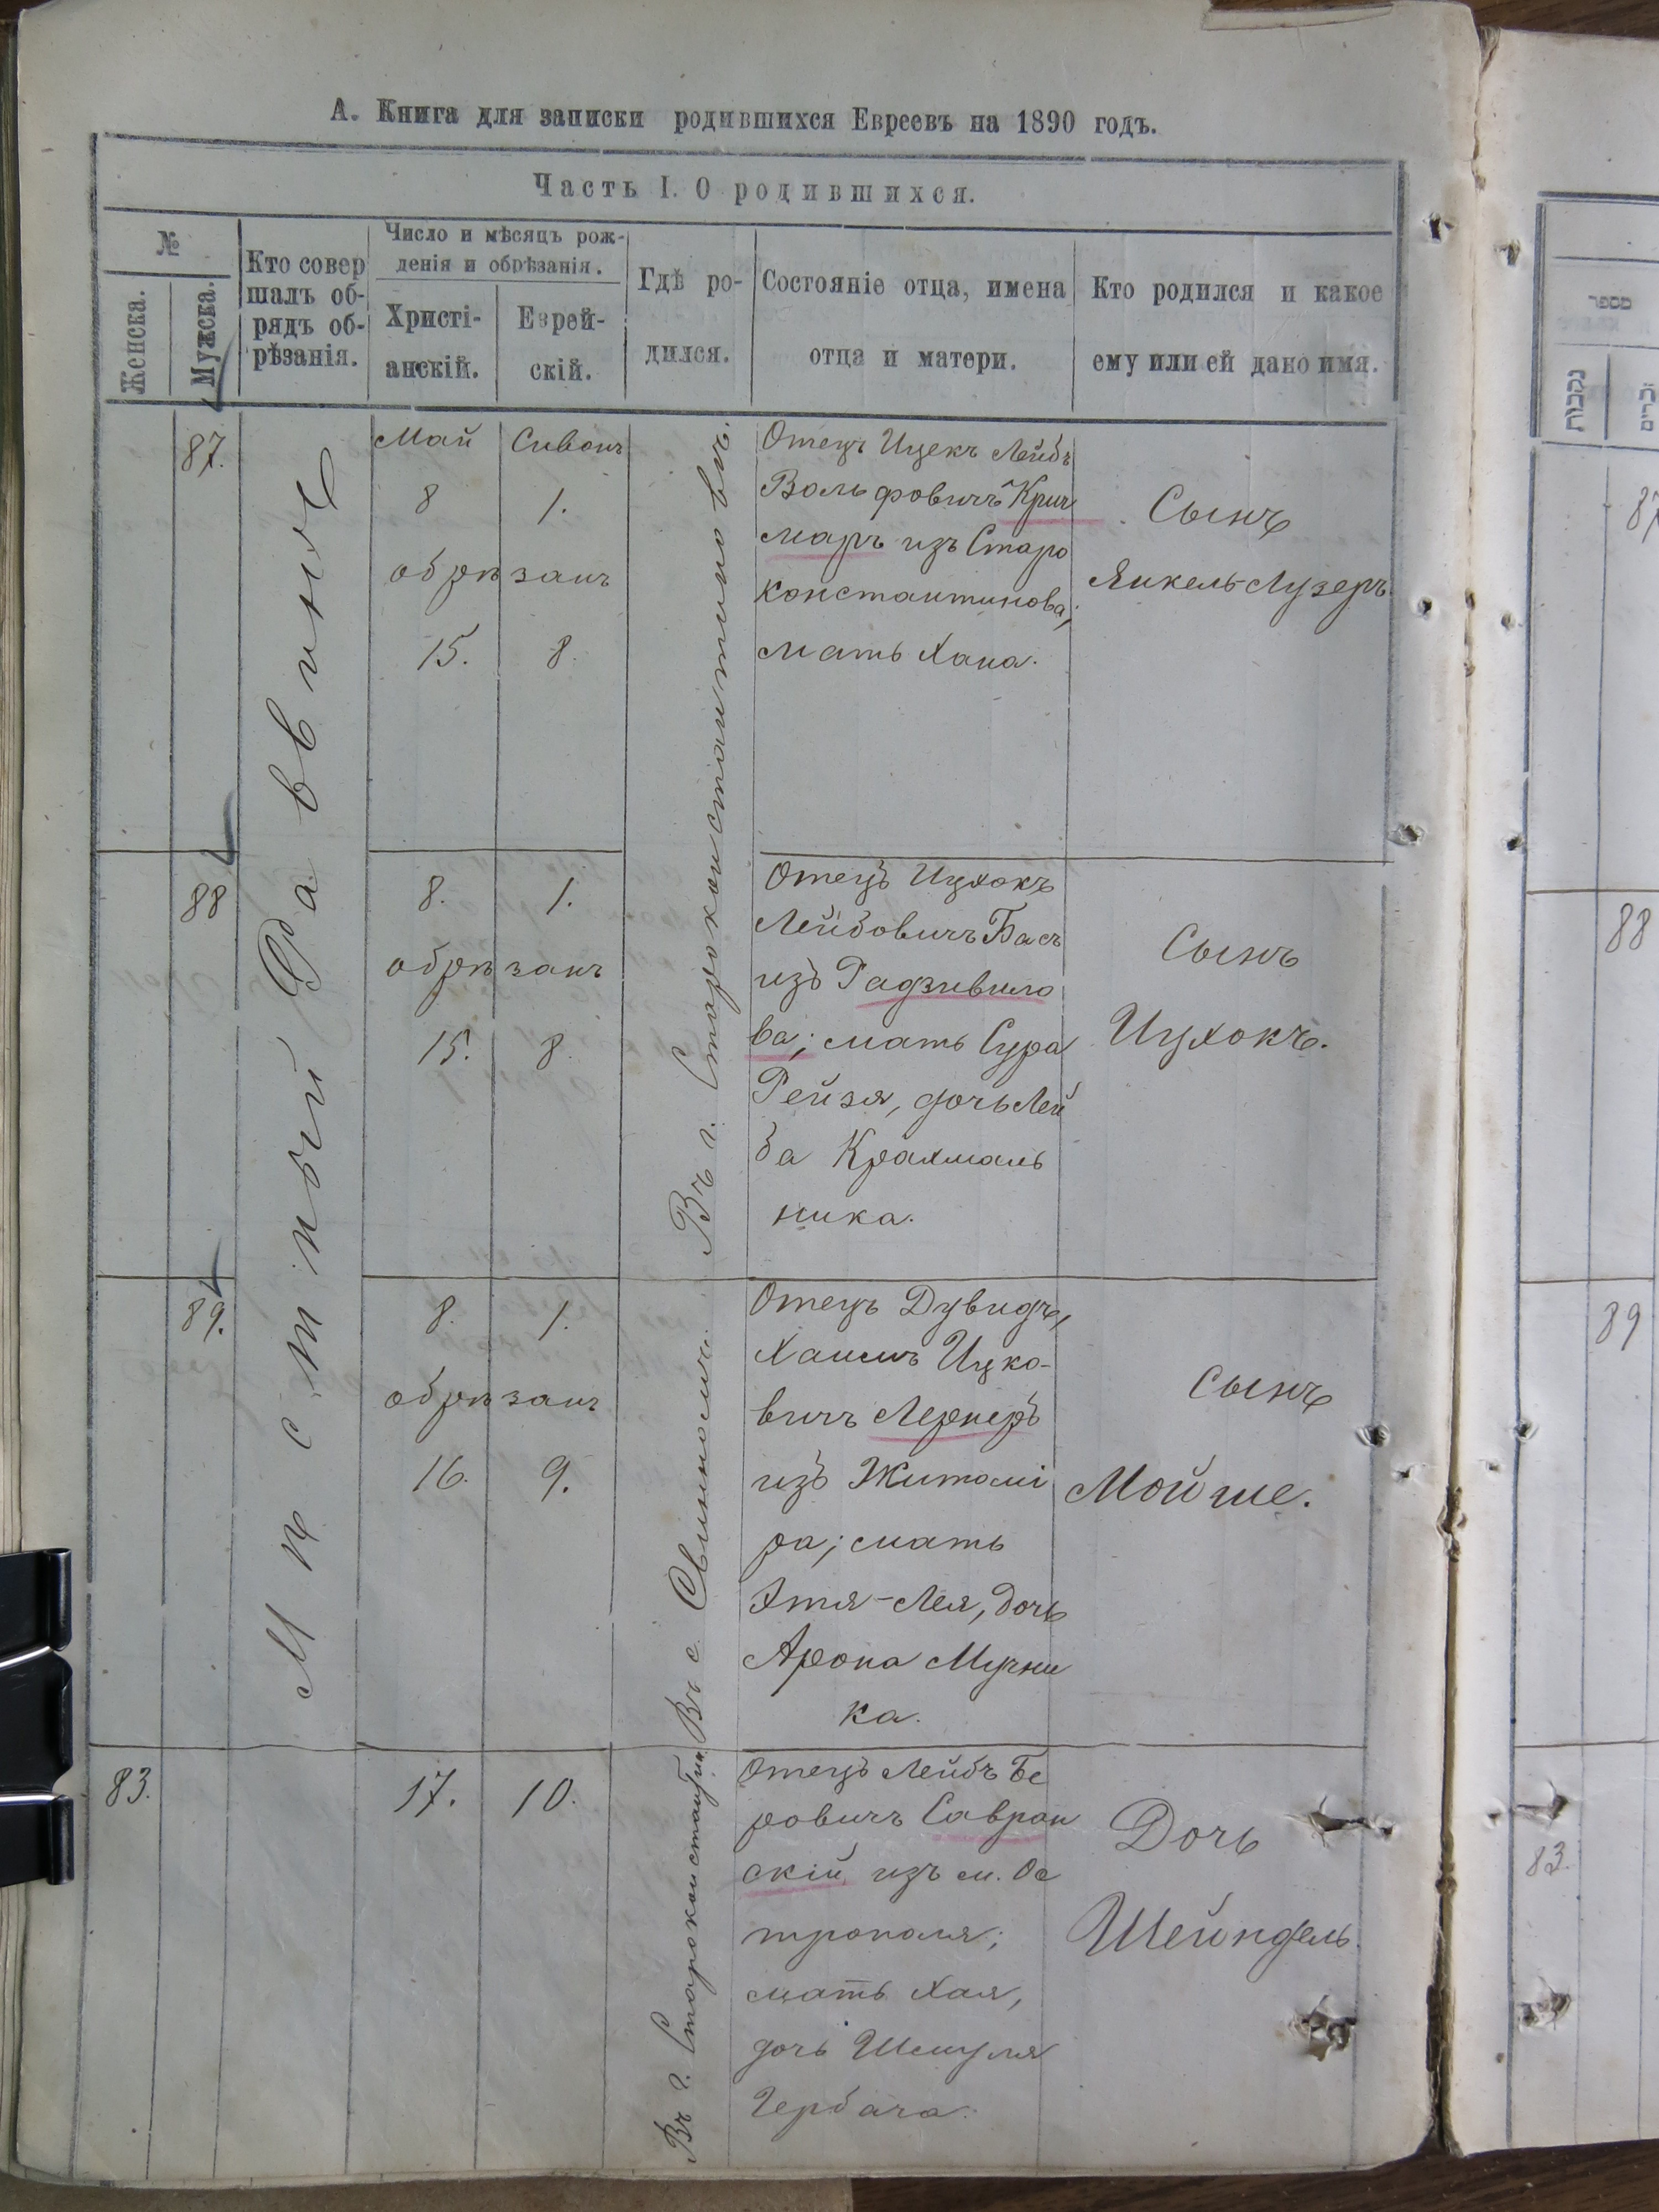 А. Книга для записки родившихся Евреевъ на 1890 годъ.
Часть I. О родившихся.
№
Женска.
Мужска.
Кто совер
шалъ об-
рядъ об-
рѣзанія.
Число и мѣсяцъ рож-
денія и обрѣзанія.
Христі-
анскій.
Еврей-
скій.
Гдѣ ро-
дился.
Состояніе отца, имена
отца и матери.
Кто родился и какое
ему или ей дано имя.
Мѣстный Раввинъ
87.
Май Сивонъ
8 1.
обрѣзанъ
15. 8.
Въ г. Староконстантиновѣ.
Отецъ Ицекъ Лейбъ
Вольфовичъ Крич
маръ изъ Старо
константинова;
мать Хана.
Сынъ
Янкель-Лузеръ
88
8. 1.
обрѣзанъ
15. 8.
Отецъ Ицхокъ
Лейбовичъ Басъ
изъ Радзивило
ва; мать Сура
Рейзя, дочь Лей
ба Крахмаль
ника.
Сынъ
Ицхокъ.
89.
8. 1.
обрѣзанъ
16. 9.
Въ с. Свинномъ.
Отецъ Дувидъ,
Хаимъ Ицко-
вичъ Лернеръ
изъ Житомі
ра; мать
Этя-Лея, дочь
Арона Мучни
ка.
Сынъ
Мойше.
83.
17. 10.
Въ г. Староконстант
Отецъ Лейбъ Бе
ровичъ Савран
скій изъ м. Ос
трополя;
мать Хая,
дочь Шмуля
Гербача.
Дочь
Шейндель.
מספר
נקבות
זכרים
87
88
89
83.